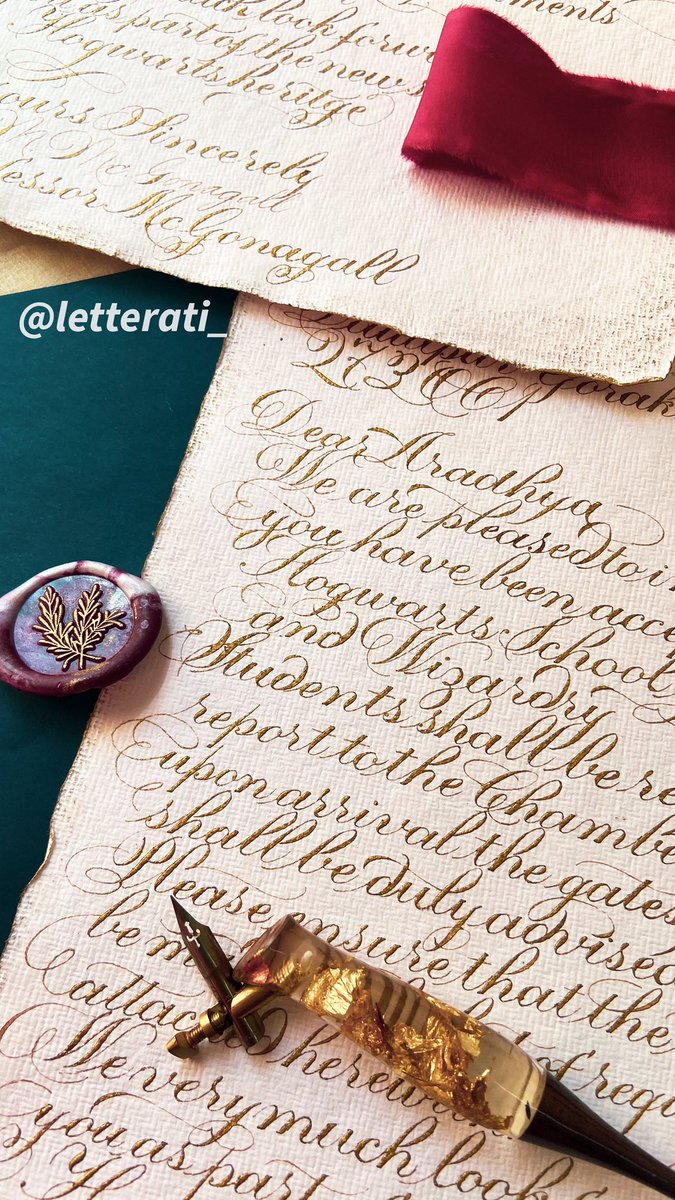 ments
look forwa
as part of the new s
Hogwarts heritge
ours Sincerely
M McGonagall
fessor McGonagall
@letterati_
Gorak
273001
Dear Aradhya
We are pleased to in
you have been accep
Hogwarts School
and Wizardry
Students shall be re
report to the Chambe
upon arrival the gates
shall be duly advised
Please ensure that the
be m
attac herew of requ
We very much look
you as part